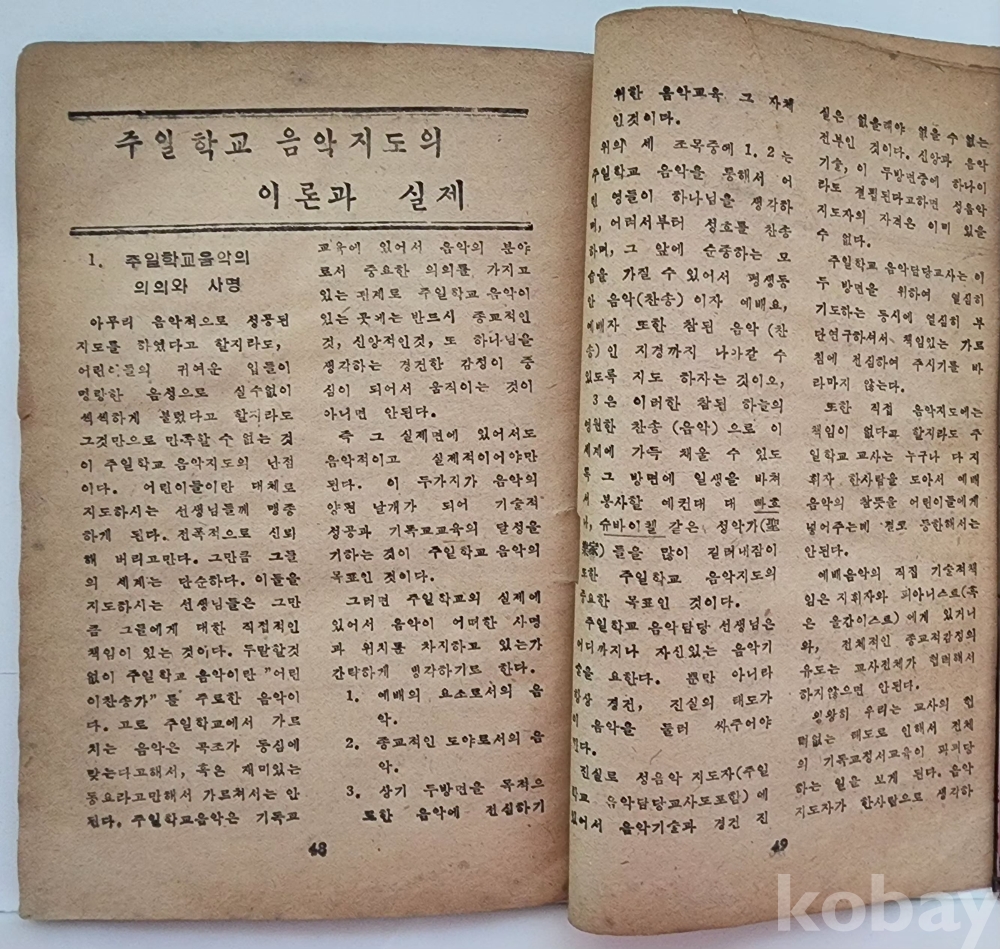 주일학교 음악지도의
이론과 실제
1. 주일학교음악의
의의와 사명
아무리 음악적으로 성공된
지도를 하였다고 할지라도,
어린이들의 귀여운 입들이
명랑한 음정으로 실수없이
씩씩하게 불렀다고 할지라도
그것만으로 만족할 수 없는 것
이 주일학교 음악지도의 난점
이다. 어린이들이란 대체로
지도하시는 선생님들께 맹종
하게 된다. 전폭적으로 신뢰
해 버리고만다. 그만큼 그들
의 세계는 단순하다. 이들을
지도하시는 선생님들은 그만
큼 그들에게 대한 직접적인
책임이 있는 것이다. 두말할것
없이 주일학교 음악이란 "어린
이찬송가"를 주로한 음악이
다. 고로 주일학교에서 가르
치는 음악은 곡조가 동심에
맞는다고해서, 혹은 재미있는
동요라고만해서 가르쳐서는 안
된다. 주일학교음악은 기독교
교육에 있어서 음악의 분야
로서 중요한 의의를 가지고
있는 관계로 주일학교 음악이
있는 곳에는 반드시 종교적인
것, 신앙적인것, 또 하나님을
생각하는 경건한 감정이 중
심이 되어서 움직이는 것이
아니면 안된다.
즉 그 실제면에 있어서도
음악적이고 실제적이어야만
된다. 이 두가지가 음악의
양쪽 날개가 되어 기술적
성공과 기독교교육의 달성을
기하는 것이 주일학교 음악의
목표인 것이다.
그러면 주일학교의 실제에
있어서 음악이 어떠한 사명
과 위치를 차지하고 있는가
간략하게 생각하기로 한다.
1. 예배의 요소로서의 음
악.
2. 종교적인 도야로서의 음
악.
3. 상기 두방면을 목적으
로한 음악에 전심하기
48
위한 음악교육 그 자체
인것이다.
위의 세 조목중에 1. 2는
주일학교 음악을 통해서 어
린 영들이 하나님을 생각하
며, 어려서부터 성호를 찬송
하며, 그 앞에 순종하는 모
습을 가질 수 있어서 평생동
안 음악(찬송)이자 예배요,
예배자 또한 참된 음악 (찬
송)인 지경까지 나아갈 수
있도록 지도 하자는 것이오,
3은 이러한 참된 하늘의
영원한 찬송 (음악) 으로 이
세계에 가득 채울 수 있도
록 그 방면에 일생을 바쳐
서 봉사할 예컨대 대 빠호
나, 슈바이쩰 같은 성악가(聖
樂家)들을 많이 길러내잠이
또한 주일학교 음악지도의
중요한 목표인 것이다.
주일학교 음악담당 선생님은
어디까지나 자신있는 음악기
술을 요한다. 뿐만 아니라
항상 경건, 진실의 태도가
이 음악을 둘러 싸주어야
된다.
진실로 성음악 지도자(주일
학교 음악담당교사도포함)에
있어서 음악기술과 경건 진
실은 없을래야 없을 수 없는
전부인 것이다. 신앙과 음악
기술, 이 두방면중에 하나이
라도 결핍된다고하면 성음악
지도자의 자격은 이미 있을
수 없다.
주일학교 음악담당교사는 이
두 방면을 위하여 열심히
기도하는 동시에 열심히 부
단연구하셔서, 책임있는 가르
침에 전심하여 주시기를 바
라마지 않는다.
또한 직접 음악지도에는
책임이 없다곡 할지라도 주
일학교 교사는 누구나 다 지
휘자 한사람을 도아서 예배
음악의 참뜻을 어린이들에게
넣어주는데 결코 등한해서는
안된다.
예배음악의 직접 기술적책
임은 지휘자와 피아니스트(혹
은 올간이스트)에게 있거니
와, 전체적인 종교적감정의
유도는 교사전체가 협력해서
하지않으면 안된다.
왕왕히 우리는 교사의 협
력없는 태도로 인해서 전체
의 기독교정서교육이 파괴당
하는 일을 보게 된다. 음악
지도자가 한사람으로 생각하
49
kobay